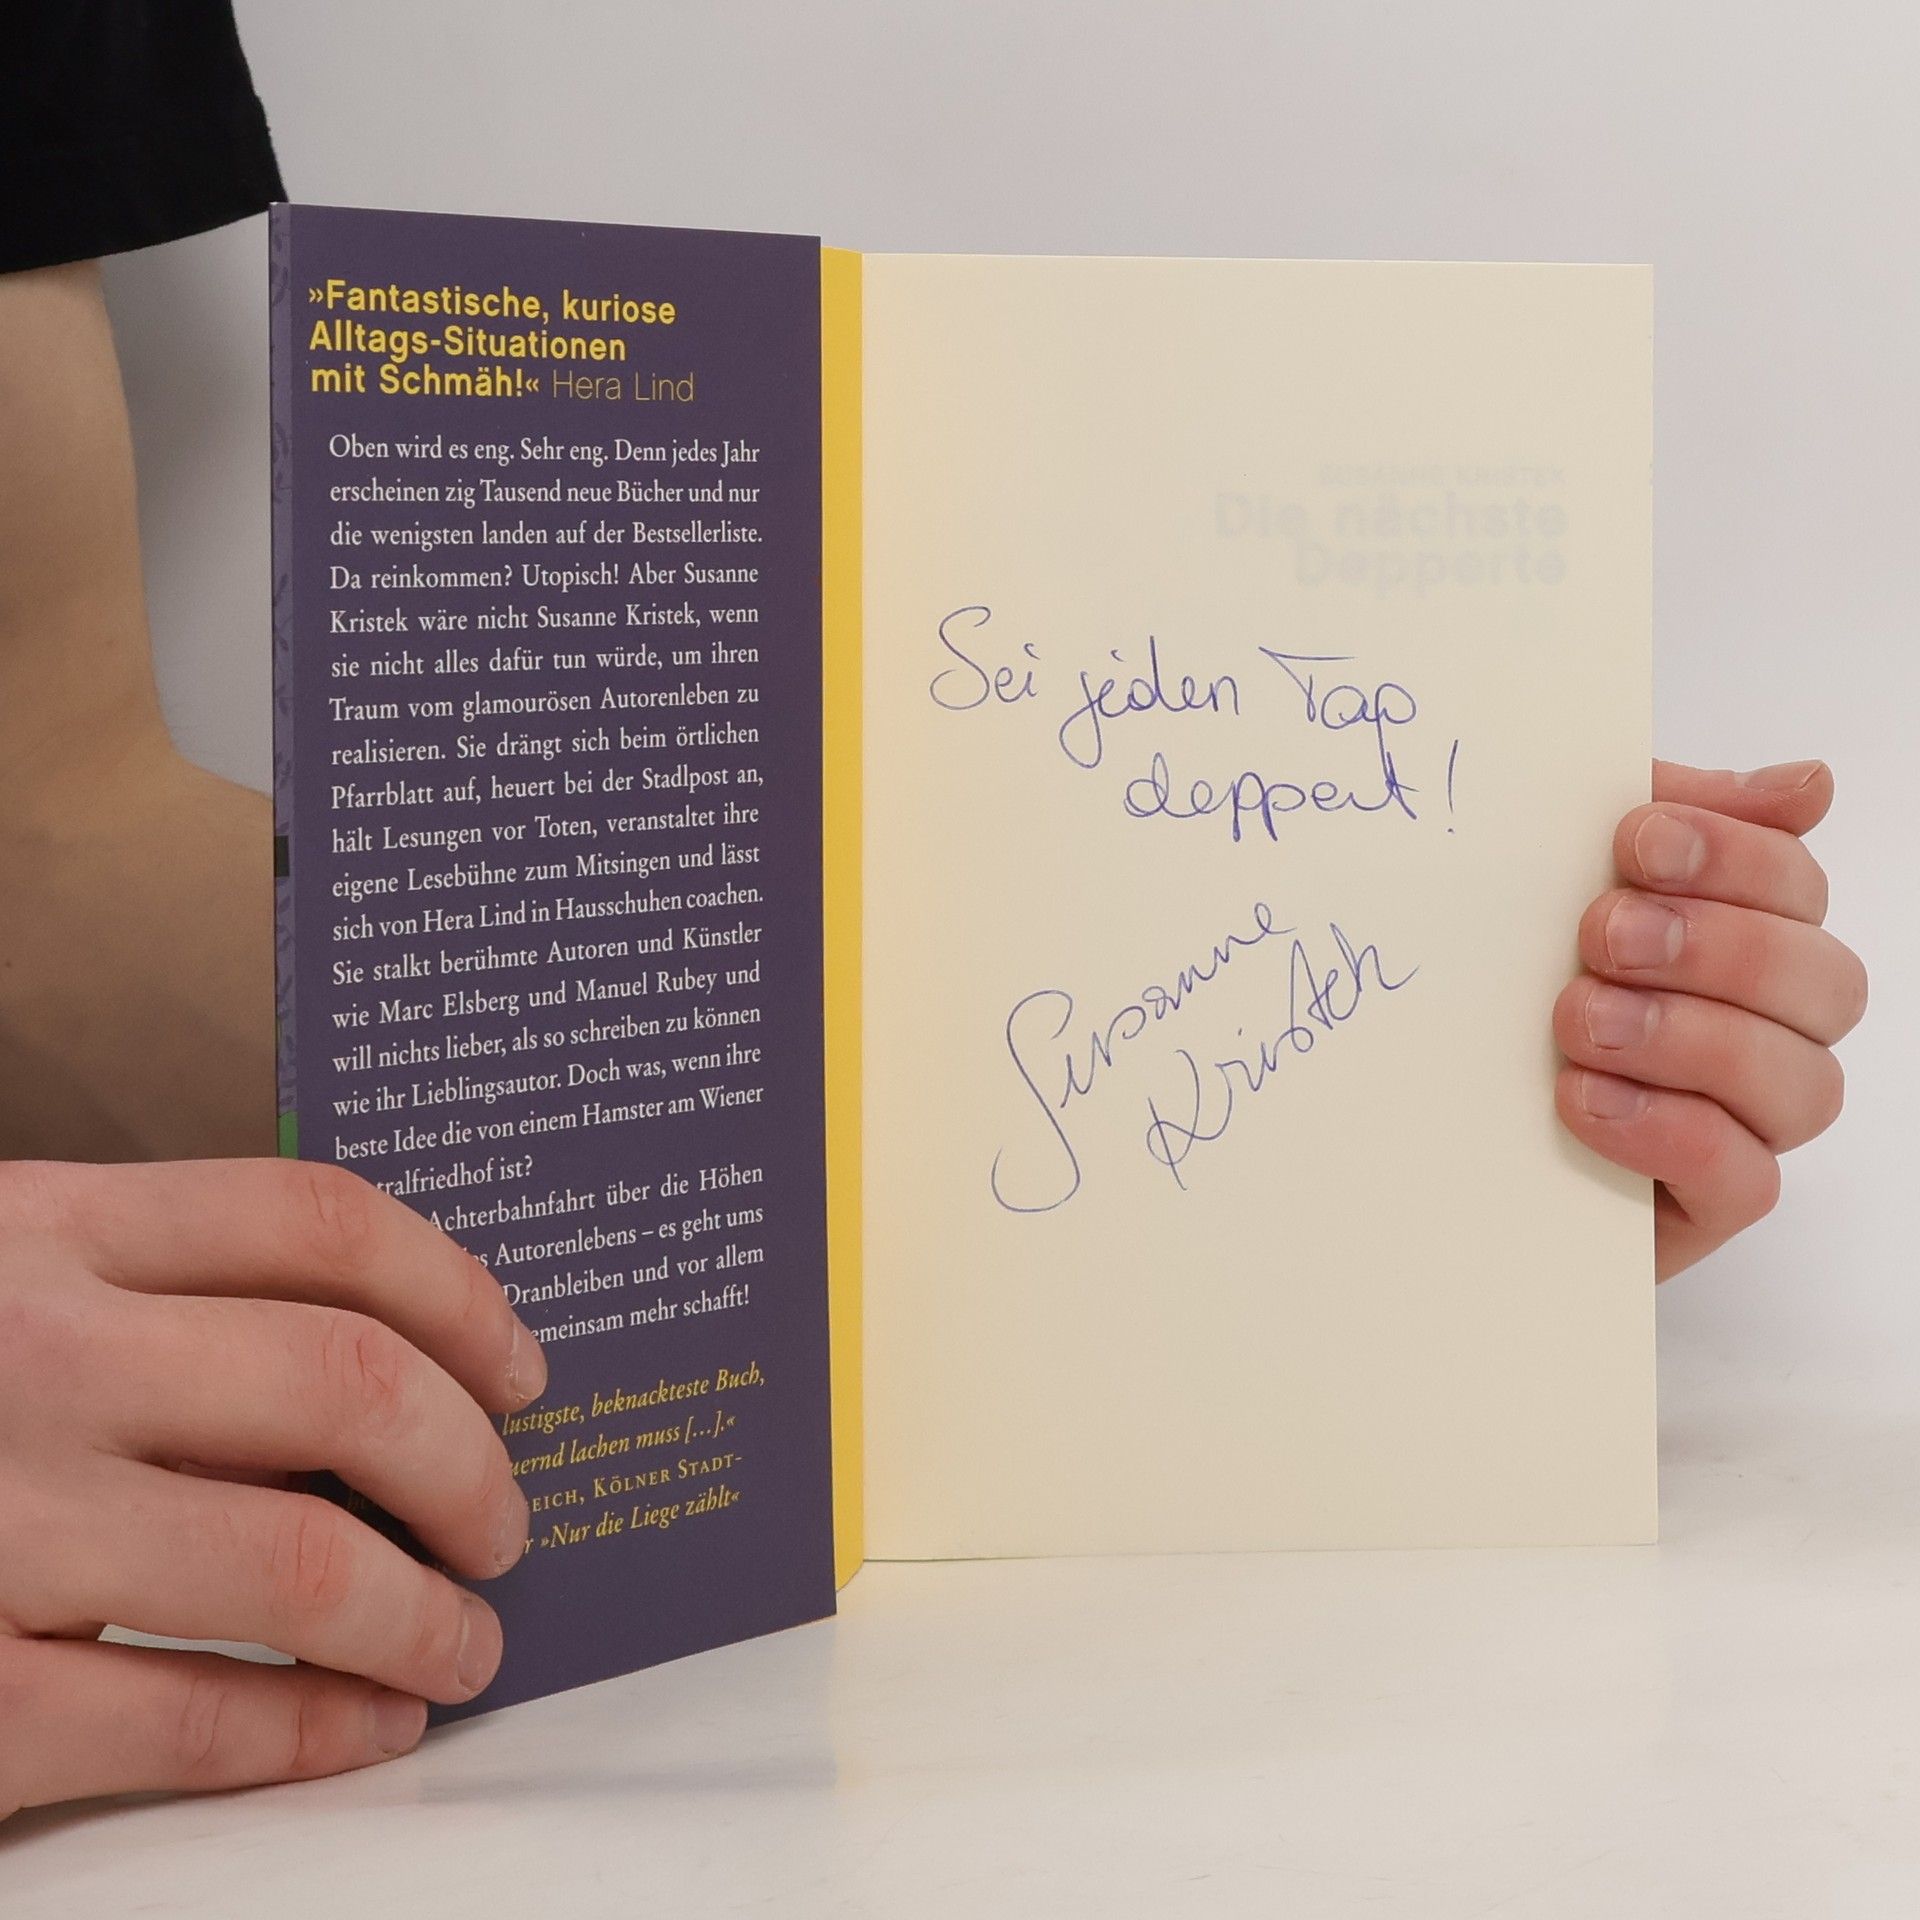 »Fantastische, kuriose
Alltags-Situationen
mit Schmäh!« Hera Lind
Oben wird es eng. Sehr eng. Denn jedes Jahr
erscheinen zig Tausend neue Bücher und nur
die wenigsten landen auf der Bestsellerliste.
Da reinkommen? Utopisch! Aber Susanne
Kristek wäre nicht Susanne Kristek, wenn
sie nicht alles dafür tun würde, um ihren
Traum vom glamourösen Autorenleben zu
realisieren. Sie drängt sich beim örtlichen
Pfarrblatt auf, heuert bei der Stadlpost an,
hält Lesungen vor Toten, veranstaltet ihre
eigene Lesebühne zum Mitsingen und lässt
sich von Hera Lind in Hausschuhen coachen.
Sie stalkt berühmte Autoren und Künstler
wie Marc Elsberg und Manuel Rubey und
will nichts lieber, als so schreiben zu können
wie ihr Lieblingsautor. Doch was, wenn ihre
beste Idee die von einem Hamster am Wiener
tralfriedhof ist?
Achterbahnfahrt über die Höhen
s Autorenlebens – es geht ums
Dranbleiben und vor allem
emeinsam mehr schafft!
lustigste, beknackteste Buch,
uernd lachen muss [...].«
EICH, KÖLNER STADT-
r »Nur die Liege zählt«
SUSANNE KRISTEK
Die nächste
Depperte
Sei jeden Tag
deppert!
Susanne
Kristek